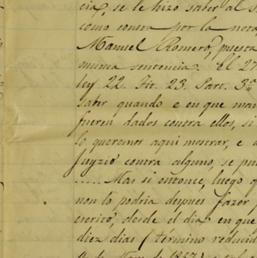 cia, se le hizo saber al S
como consta por la nota
Manuel Romero, puesta
misma sentencia. El 27
ley 22. Tit. 23. Part. 3ª
saber quando e en que man
fueren dados contra ellos, si
lo queremos aqui mostrar, e d
juyzio contra alguno se pue
..... Mas si entonce, luego q
non lo podria depues fazer p
escrito, desde el dia en que
diez dias (término reducido